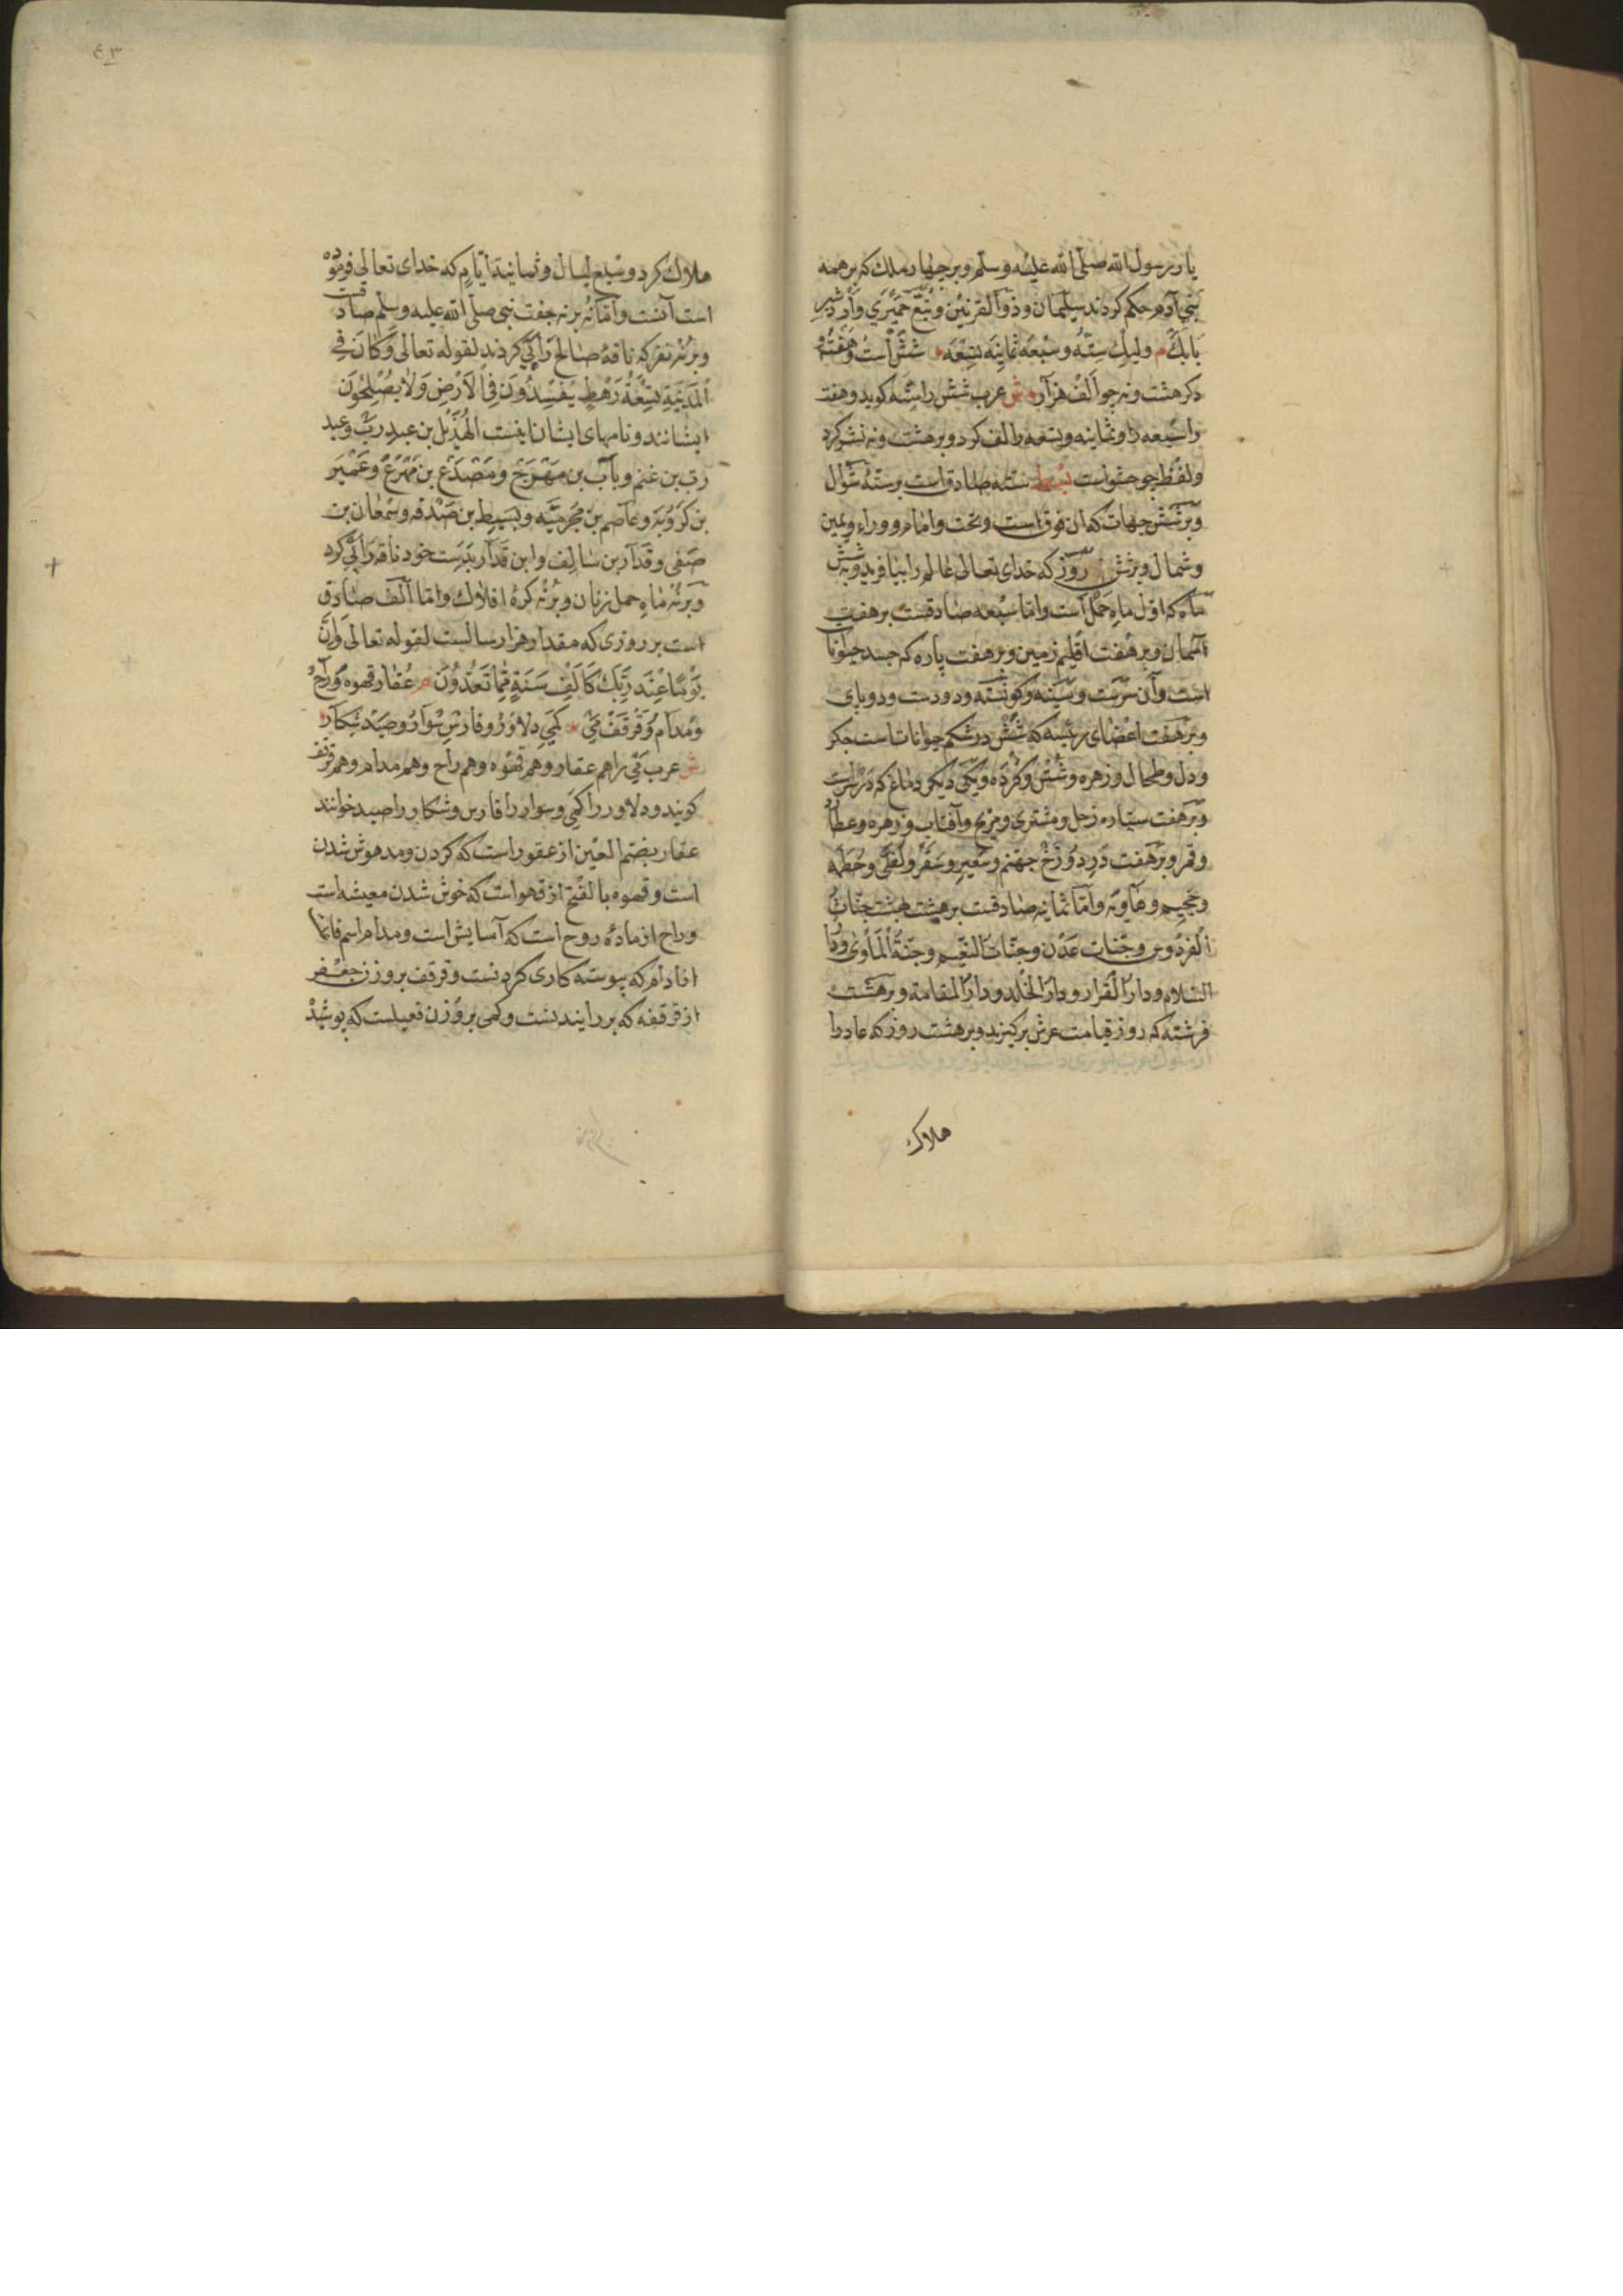 یار رسول الله صلی الله علیه وسلم وبر چهار ملک که بر همه
بنی آدم حکم کردند سلیمان وذو القرنین وتبع حمیری واردشیر
بابک م ولیک سته وسبعه ثمانیه تسعه شش است وهفت و
دکر هشت ونه چو الف هزار ش عرب شش را سته کوید وهفت
را سبعه را وثمانیه وتسعه والف کرد وبر هشت ونه نشر کرد
ولفظ چو حشواست بسیط سته صادق است بر سته شوال
وبر شش جهات که ان فوق است وتحت وامام ووراء ویمین
وشمال وبر شش روز که خدای تعالی عالم را بیافرید وبر شش
ماه که اول ماه حمل است واما سبعه صادقست بر هفت
آسمان وبر هفت اقلیم زمین وبر هفت پاره که جسد حیوانا
است وآن سرست وسینه وکوشته ودودست ودوپای
وبر هفت اعضای رئیسه که شش در شکم حیوانات است جکر
ودل وطحال وزهره وشش وکرده ویکی دیکر دماغ که در سراست
وبر هفت سیاره زحل ومشتری ومریخ وآفتاب وزهره وعطارد
وقمر وبر هفت در دوزخ جهنم وسعیر وسقر ولظی وحطمه
وجحیم وهاویه واما ثمانیه صادقست بر هشت بهشت جنات
الفردوس وجنات عدن وجنات النعیم وجنة الماوی ودار
السلام ودار القرار ودار الخلد ودار المقامة وبر هشت
فرشته که روز قیامت عرش برکیرند وبر هشت روز که عاد را
هلاک
۴۳
هلاک کرد وسبع لیال وثمانیة ایام که خدای تعالی فرموده
است آنست واما نه بر نه جفت نبی صلی الله علیه وسلم صادقت
وبر نه نفر که ناقهٔ صالح را پی کردند لقوله تعالی وکان فی
المدینة تسعة رهط یفسدون فی الارض ولا یصلحون
ایشانند ونامهای ایشان اینست الهذیل بن عبد رب وعبد
رب بن غنم ویاب بن مهرج ومصدع بن مهرع وعمیر
بن کروبه وعاصم بن مخرمیه وبسیط بن صدقه وسمعان بن
صفی وقدار بن سالف وابن قدار بدست خود ناقه را پی کرد
وبر نه ماه حمل زنان وبر نه کرهٔ افلاک واما الف صادق
است بر روزی که مقدار هزار سالست لقوله تعالی وان
یوما عند ربک کالف سنة مما تعدون م عقار قهوه وراح
ومدام وقرقف می کمی دلاور وفارس سوار وصید شکار
ش عرب می را هم عقار وهم قهوه وهم راح وهم مدام وهم قرقف
کویند ودلاور را کمی وسوار را فارس وشکار را صید خوانند
عقار بضم العین از عقور است که کردن ومدهوش شدن
است وقهوه بالفتح از قهواست که خوش شدن معیشه است
وراح از مادهٔ روح است که آسایش است ومدام اسم فاتما
ادام که پیوسته کاری کردنست وقرقف بروزن جعفر
از قرقفه که بررایندنست وکمی بر وزن فعیلست که پوشید